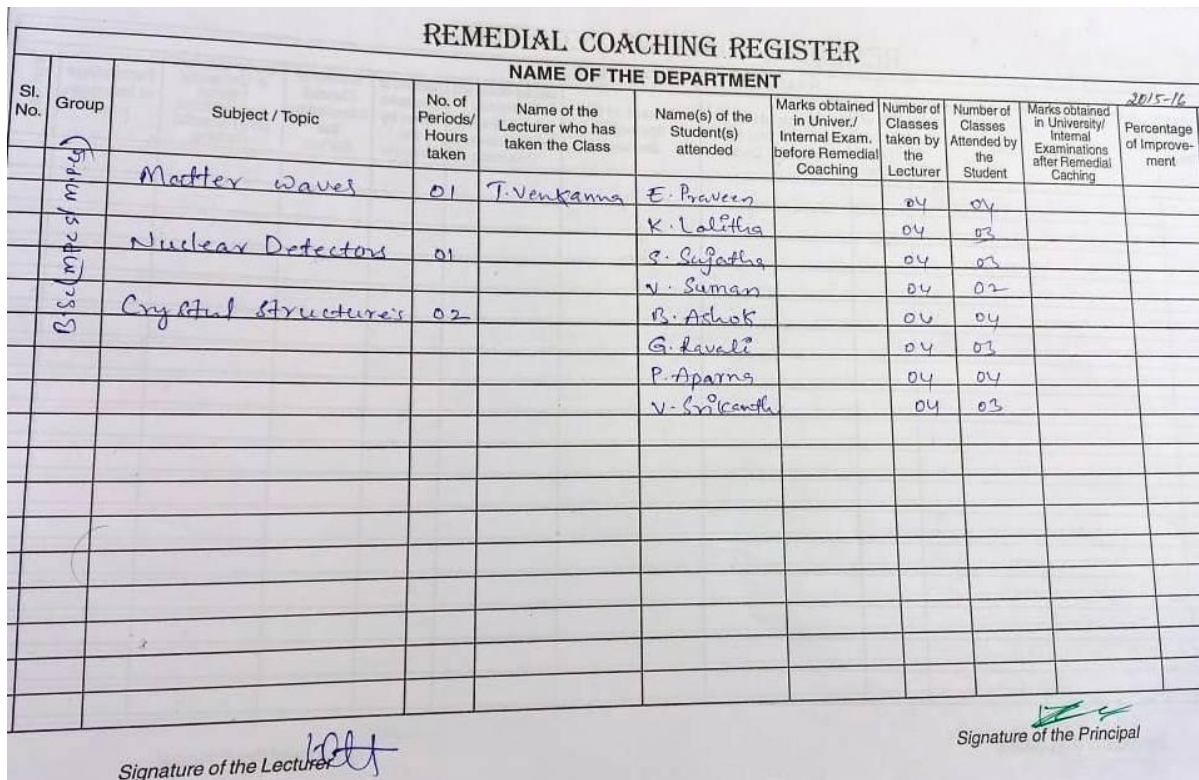 REMEDIAL COACHING REGISTER
NAME OF THE DEPARTMENT
2015-16
Sl. No. Group Subject / Topic No. of Periods/ Hours taken Name of the Lecturer who has taken the Class Name(s) of the Student(s) attended Marks obtained in Univer./ Internal Exam. before Remedial Coaching Number of Classes taken by the Lecturer Number of Classes Attended by the Student Marks obtained in University/ Internal Examinations after Remedial Caching Percentage of Improve-ment
Matter waves 01 T. Venkanna E. Praveen 04 04
K. Lalitha 04 03
Nuclear Detectors 01 S. Sujatha 04 03
V. Suman 04 02
Crystal Structure's 02 B. Ashok 04 04
G. Ravali 04 03
P. Aparna 04 04
V. Srikanth 04 03
Signature of the Lecturer
Signature of the Principal